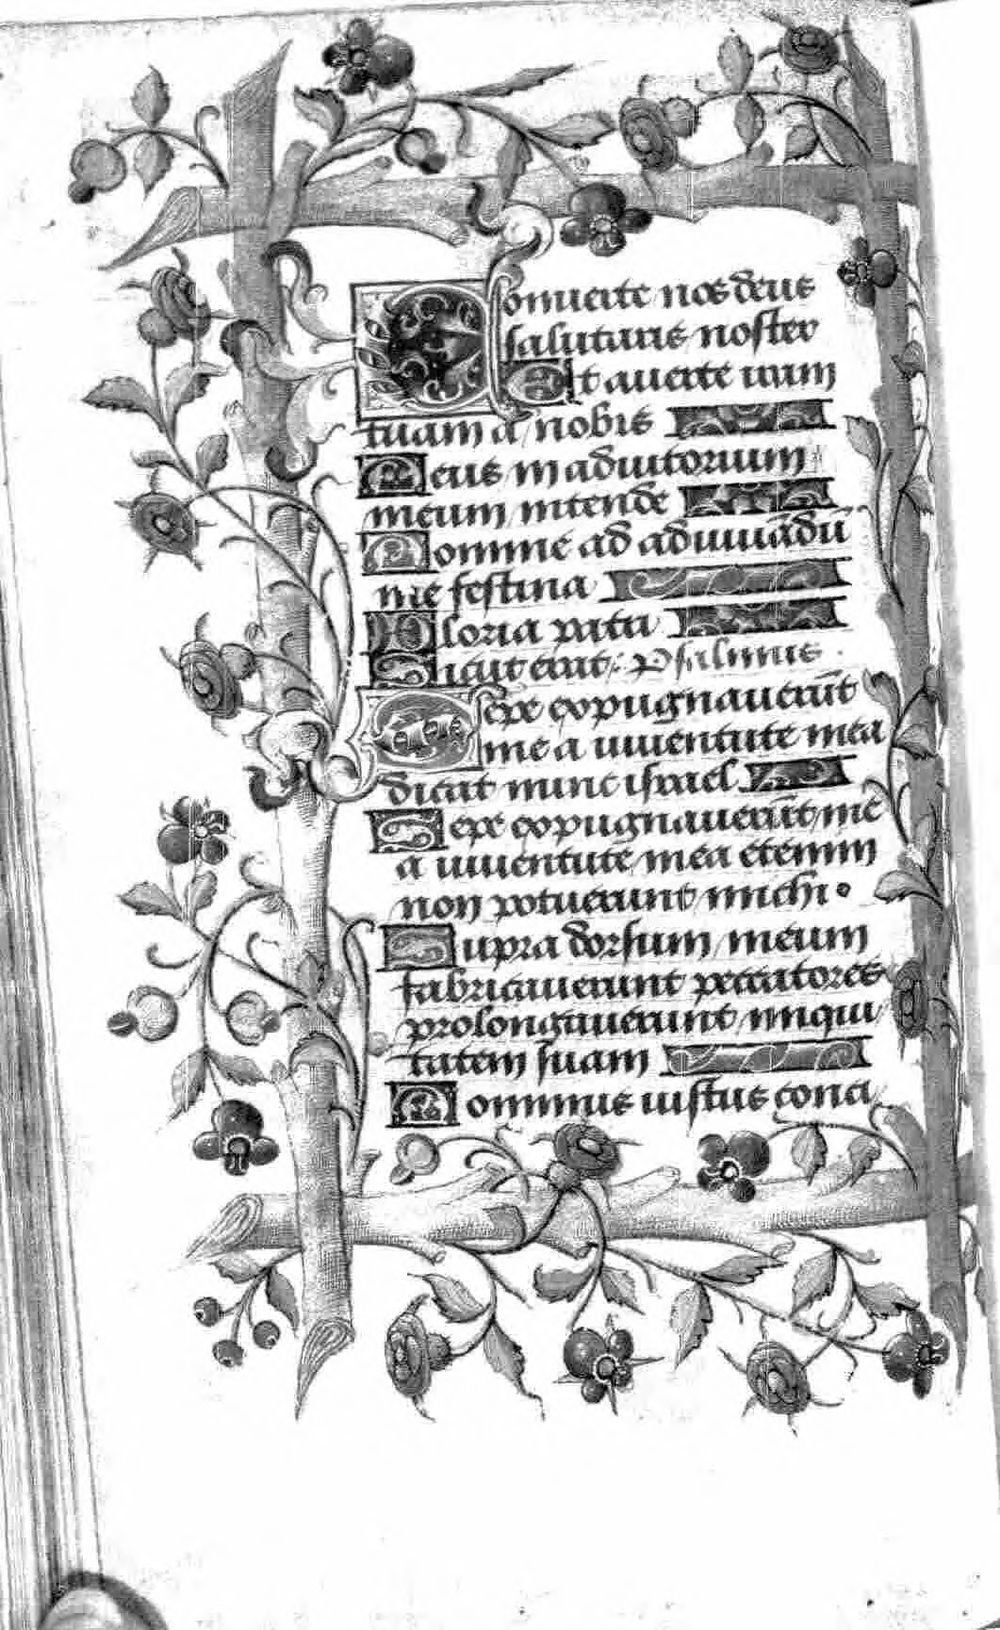 Conuerte nos deus
salutaris noster
Et auerte iram
tuam a nobis
Deus in adiutorium
meum intende
Domine ad adiuuādū
me festina
Gloria patri
Sicut erat: Psalmus
Sepe expugnauerūt
me a iuuentute mea
dicat nunc israel
Sepe expugnauerūt me
a iuuentute mea etenim
non potuerunt michi.
Supra dorsum meum
fabricauerunt peccatores
prolongauerunt iniqui
tatem suam
Dominus iustus conci